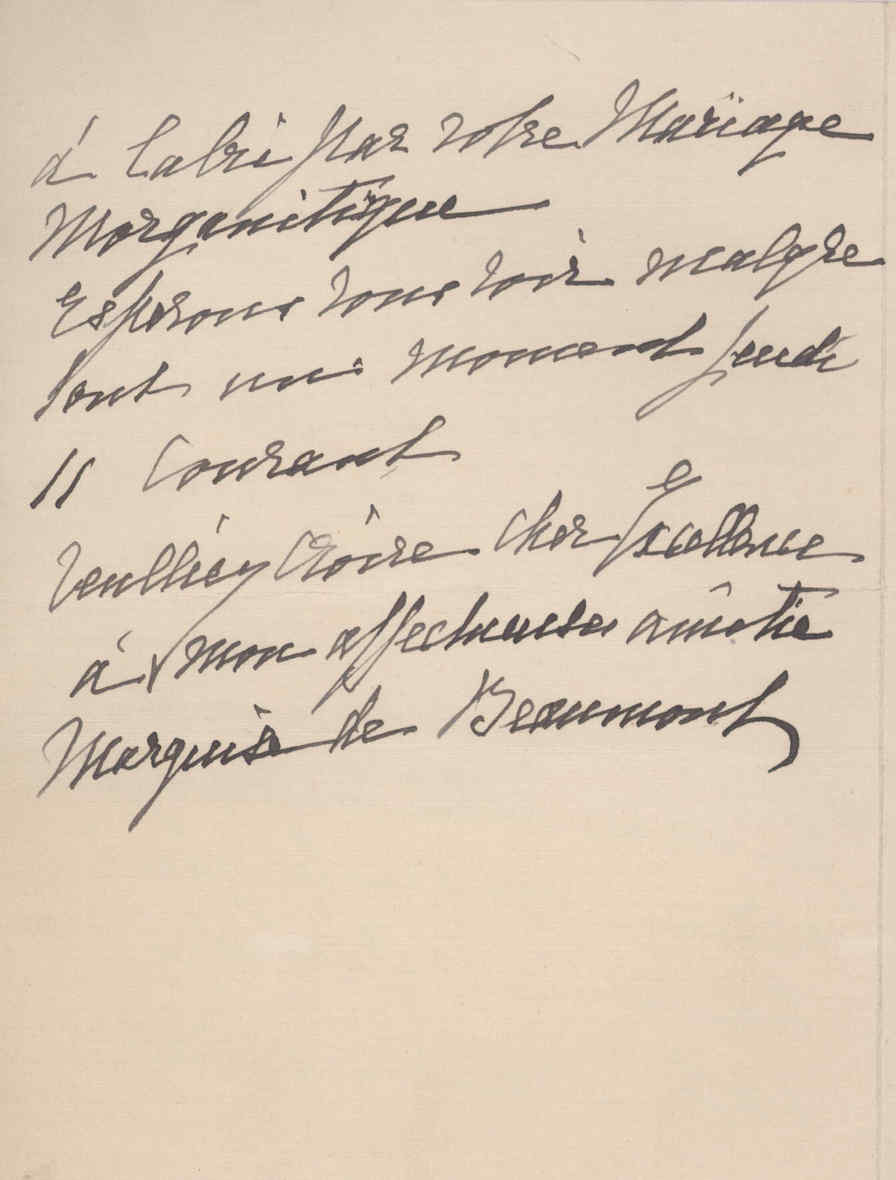 à l'abri par votre Mariage
Morganitique
Esperons vous voir malgre
tout un moment Jeudi
11 Courant
Veuilliez croire cher Excellence
à mon affectueuse amitie
Marquise de Beaumont